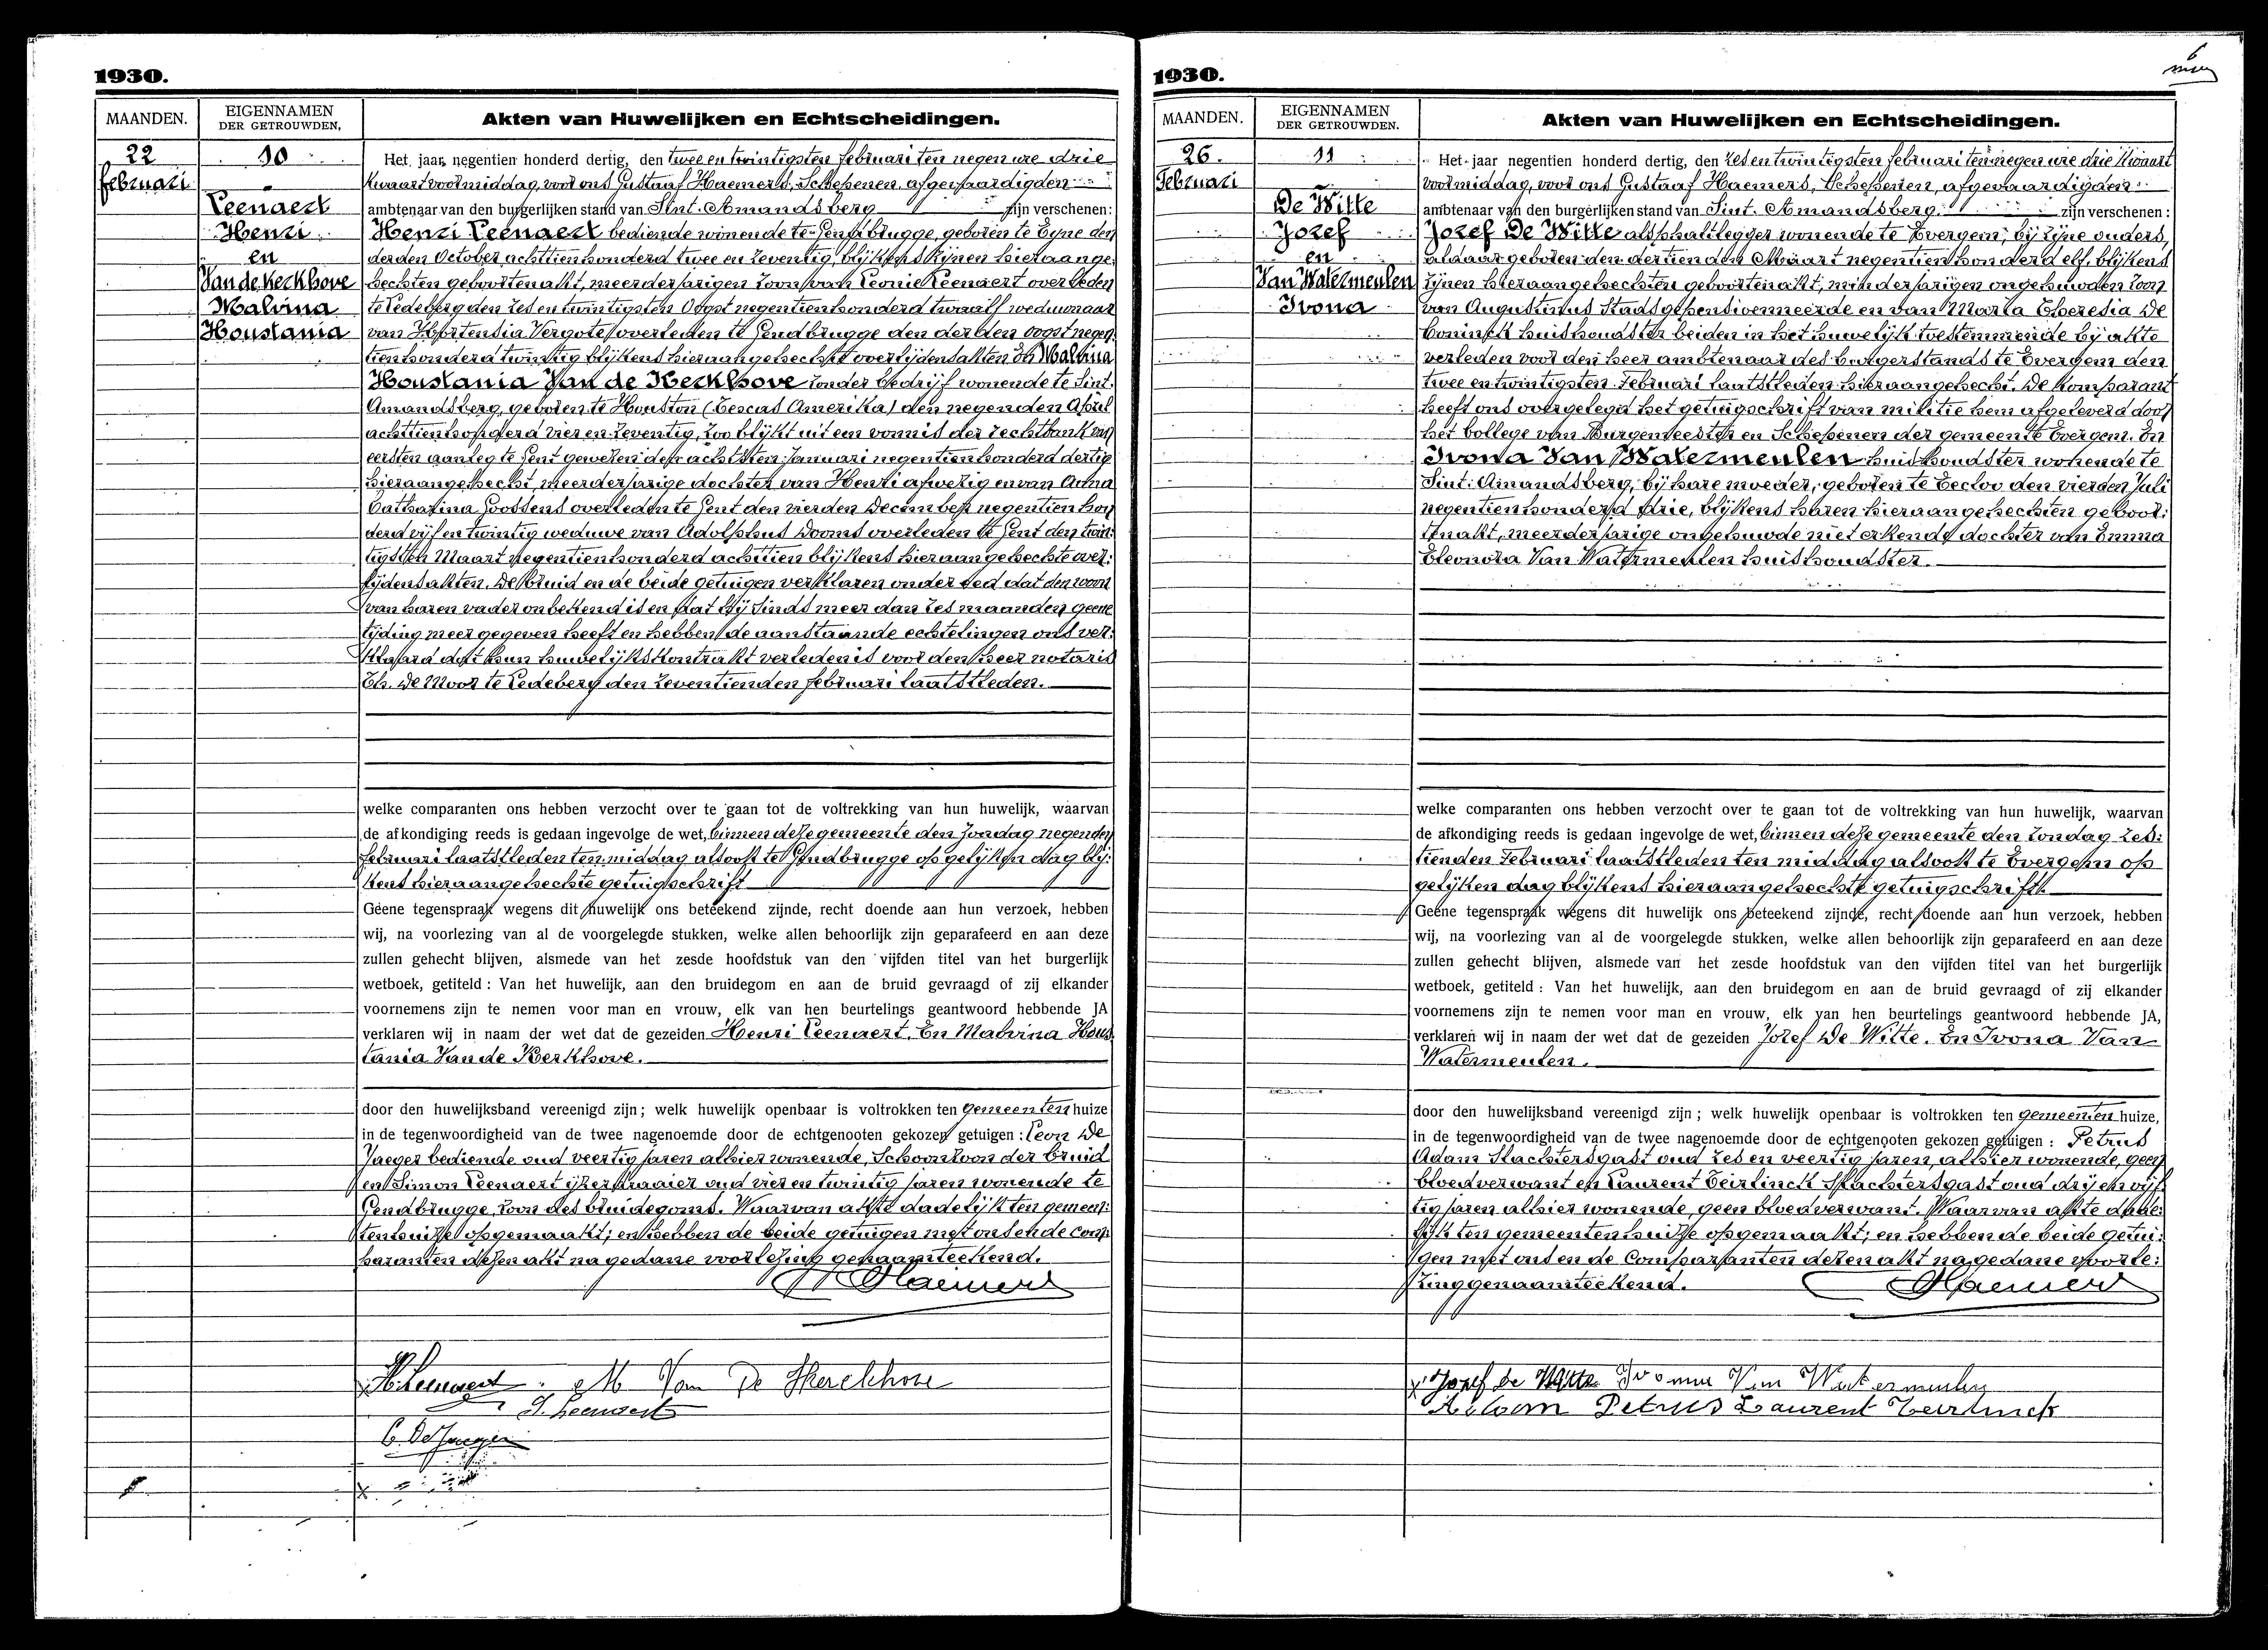 1930.
MAANDEN.
EIGENNAMEN
DER GETROUWDEN.
Akten van Huwelijken en Echtscheidingen.
22
februari
10
Leenaert
Henri
en
Van de Kerkhove
Malvina
Houstania
Het jaar negentien honderd dertig, den twee en twintigsten februari ten negen ure drie
kwaart voormiddag, voor ons Gustaaf Haemers, Schepenen, afgevaardigden
ambtenaar van den burgerlijken stand van Sint-Amandsberg zijn verschenen:
Henri Leenaert bediende wonende te Gendbrugge, geboren te Eyne den
derden October achttienhonderd twee en zeventig, blijkens zijnen hieraange:
hechten geboortenakt, meerderjarigen zoon van Leonie Leenaert overleden
te Ledeberg den zes en twintigsten Oogst negentienhonderd twaalf weduwnaar
van Hortensia Vergote overleden te Gendbrugge den derden oogst negen
tienhonderd twintig blijkens hieraangehechte overlijdensakten En Malvina
Houstania Van de Kerkhove zonder bedrijf wonende te Sint:
Amandsberg, geboren te Houston (Texas Amerika) den negenden April
achttienhonderd vier en zeventig, zoo blijkt uit een vonnis der rechtbank van
eersten aanleg te Gent gewezen den achtsten Januari negentienhonderd dertig
hieraangehecht, meerderjarige dochter van Henri afwezig en van Anna
Catharina Goossens overleden te Gent den vierden December negentien hon
derd vijf en twintig weduwe van Adolphus Dooms overleden te Gent den twin:
tigsten Maart negentienhonderd achttien blijkens hieraangehechte over:
lijdensakten. De bruid en de beide getuigen verklaren onder eed dat den woon
van haren vader onbekend is en dat hij sinds meer dan zes maanden geene
tijding meer gegeven heeft en hebben de aanstaande echtelingen ons ver:
klaard dat hun huwelijkskontrakt verleden is voor den heer notaris
Th. De Moor te Ledeberg den zeventienden februari laatstleden.
welke comparanten ons hebben verzocht over te gaan tot de voltrekking van hun huwelijk, waarvan
de afkondiging reeds is gedaan ingevolge de wet, binnen deze gemeente den Zondag negenden
februari laatstleden ten middag alsook te Gendbrugge op gelijken dag blij:
kens hieraangehechte getuigschrift
Geene tegenspraak wegens dit huwelijk ons beteekend zijnde, recht doende aan hun verzoek, hebben
wij, na voorlezing van al de voorgelegde stukken, welke allen behoorlijk zijn geparafeerd en aan deze
zullen gehecht blijven, alsmede van het zesde hoofdstuk van den vijfden titel van het burgerlijk
wetboek, getiteld : Van het huwelijk, aan den bruidegom en aan de bruid gevraagd of zij elkander
voornemens zijn te nemen voor man en vrouw, elk van hen beurtelings geantwoord hebbende JA
verklaren wij in naam der wet dat de gezeiden Henri Leenaert. En Malvina Hous
tania Van de Kerkhove.
door den huwelijksband vereenigd zijn ; welk huwelijk openbaar is voltrokken ten gemeenten huize
in de tegenwoordigheid van de twee nagenoemde door de echtgenooten gekozen getuigen : Leon De
Jaeger bediende oud veertig jaren alhier wonende, Schoonzoon der bruid
en Simon Leenaert ijzerdraaier oud vier en twintig jaren wonende te
Gendbrugge, zoon des bruidegoms. Waarvan akte dadelijk ten gemeen:
tenhuize opgemaakt; en hebben de beide getuigen met ons en de com:
paranten dezen akt na gedane voorlezing genaamteekend.
GHaemers
HLeenaert. M Van De Kerckhove
S. Leenaert
L. De Jaeger
1930.
MAANDEN.
EIGENNAMEN
DER GETROUWDEN.
Akten van Huwelijken en Echtscheidingen.
26.
Februari
11
De Witte
Jozef
en
Van Watermeulen
Ivona
Het jaar negentien honderd dertig, den zes en twintigsten februari ten negen ure drie kwaart
voormiddag, voor ons Gustaaf Haemers, Schepenen, afgevaardigden
ambtenaar van den burgerlijken stand van Sint-Amandsberg. zijn verschenen :
Jozef De Witte alsphaltlegger wonende te Evergem, bij zijne ouders,
aldaar geboren den dertienden Maart negentienhonderd elf, blijkens
zijnen hieraangehechten geboortenakt, minderjarigen ongehuwden zoon
van Augustinus Stadsgepensioenneerde en van Maria Theresia De
Coninck huishoudster beiden in het huwelijk toestemmende bij akte
verleden voor den heer ambtenaar des burgerstands te Evergem den
twee en twintigsten Februari laatstleden hieraangehecht. De komparant
heeft ons overgelegd het getuigschrift van militie hem afgeleverd door
het College van Burgemeester en Schepenen der gemeente Evergem. En
Ivona Van Watermeulen huishoudster wonende te
Sint-Amandsberg, bij hare moeder, geboren te Eecloo den vierden Juli
negentienhonderd drie, blijkens haren hieraangehechten geboor:
tenakt, meerderjarige ongehuwde niet erkende dochter van Emma
Eleonora Van Watermeulen huishoudster.
welke comparanten ons hebben verzocht over te gaan tot de voltrekking van hun huwelijk, waarvan
de afkondiging reeds is gedaan ingevolge de wet, binnen deze gemeente den Zondag zes:
tienden Februari laatstleden ten middag alsook te Evergem op
gelijken dag blijkens hieraangehechte getuigschrift.
Geene tegenspraak wegens dit huwelijk ons beteekend zijnde, recht doende aan hun verzoek, hebben
wij, na voorlezing van al de voorgelegde stukken, welke allen behoorlijk zijn geparafeerd en aan deze
zullen gehecht blijven, alsmede van het zesde hoofdstuk van den vijfden titel van het burgerlijk
wetboek, getiteld : Van het huwelijk, aan den bruidegom en aan de bruid gevraagd of zij elkander
voornemens zijn te nemen voor man en vrouw, elk van hen beurtelings geantwoord hebbende JA,
verklaren wij in naam der wet dat de gezeiden Jozef De Witte. En Ivona Van
Watermeulen.
door den huwelijksband vereenigd zijn ; welk huwelijk openbaar is voltrokken ten gemeenten huize,
in de tegenwoordigheid van de twee nagenoemde door de echtgenooten gekozen getuigen : Petrus
Adam Stachiersgast oud zes en veertig jaren, alhier wonende, geen
bloedverwant en Laurent Teirlinck Stachiersgast oud drij en vijf
tig jaren alhier wonende, geen bloedverwant. Waarvan akte dade:
lijk ten gemeentenhuize opgemaakt; en hebben de beide getui:
gen met ons en de Comparanten dezen akt na gedane voorle:
zing genaamteekend.
GHaemers
Jozef de Witte Ivonne Van Watermeulen
Adam Petrus Laurent Teirlinck